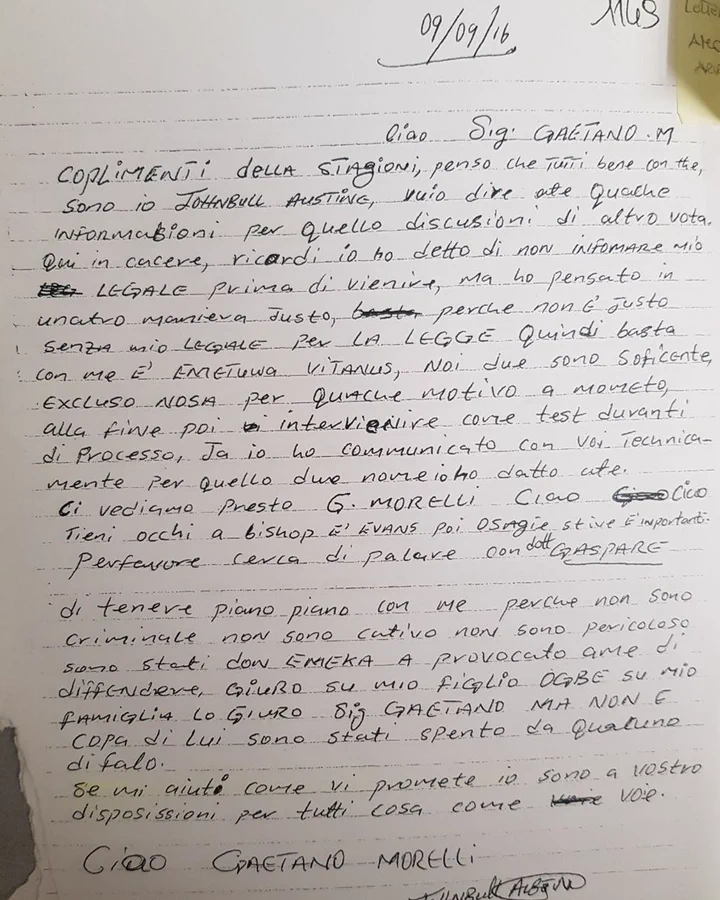 09/09/16
Ciao Sig: GAETANO.M
COPLIMENTI della STAgioni, penso che TuTTi bene con the,
Sono io JOHNBULL AUSTINE, vuio dire ate Quache
INFORMAsioni per Quello discusioni di altro vota.
Qui in cacere, ricardi io ho detto di non INFOMARE Mio
LEGALE prima di vienire, ma ho pensato in
unatro maniera Justo, perche non è Justo
SENZA mio LEGALE Per LA LEGGE Quindi basta
con me E' EMETUWA VITANUS, Noi due sono Soficente,
EXCLUSO NOSA per QUACHE motivo a mometo,
alla fine poi intervienire come test duranti
di Processo, Ja io ho communicato con Voi Technica-
mente per Quello due nome io ho datto ate.
Ci vediamo Presto G. MORELLI Ciao Cico
Tieni occhi a bishop E' EVANS Poi OSAGIE stive E' importanti.
Perfavore cerca di palare con dott GASPARE
di tenere piano piano con me perche non sono
Criminale non sono cativo non sono pericoloso
sono stati don EMEKA A PROVOCATO ame di
diffendere, GIURO su mio figlio OGBE SU MIO
FAMIGLIA LO GIURO Sig GAETANO MA NON E
COPA di Lui sono stati spento da Qualuno
di falo.
Se mi aiuto come vi promete io sono a vostro
disposissioni per tutti cosa come voe.
Ciao GAETANO MORELLI